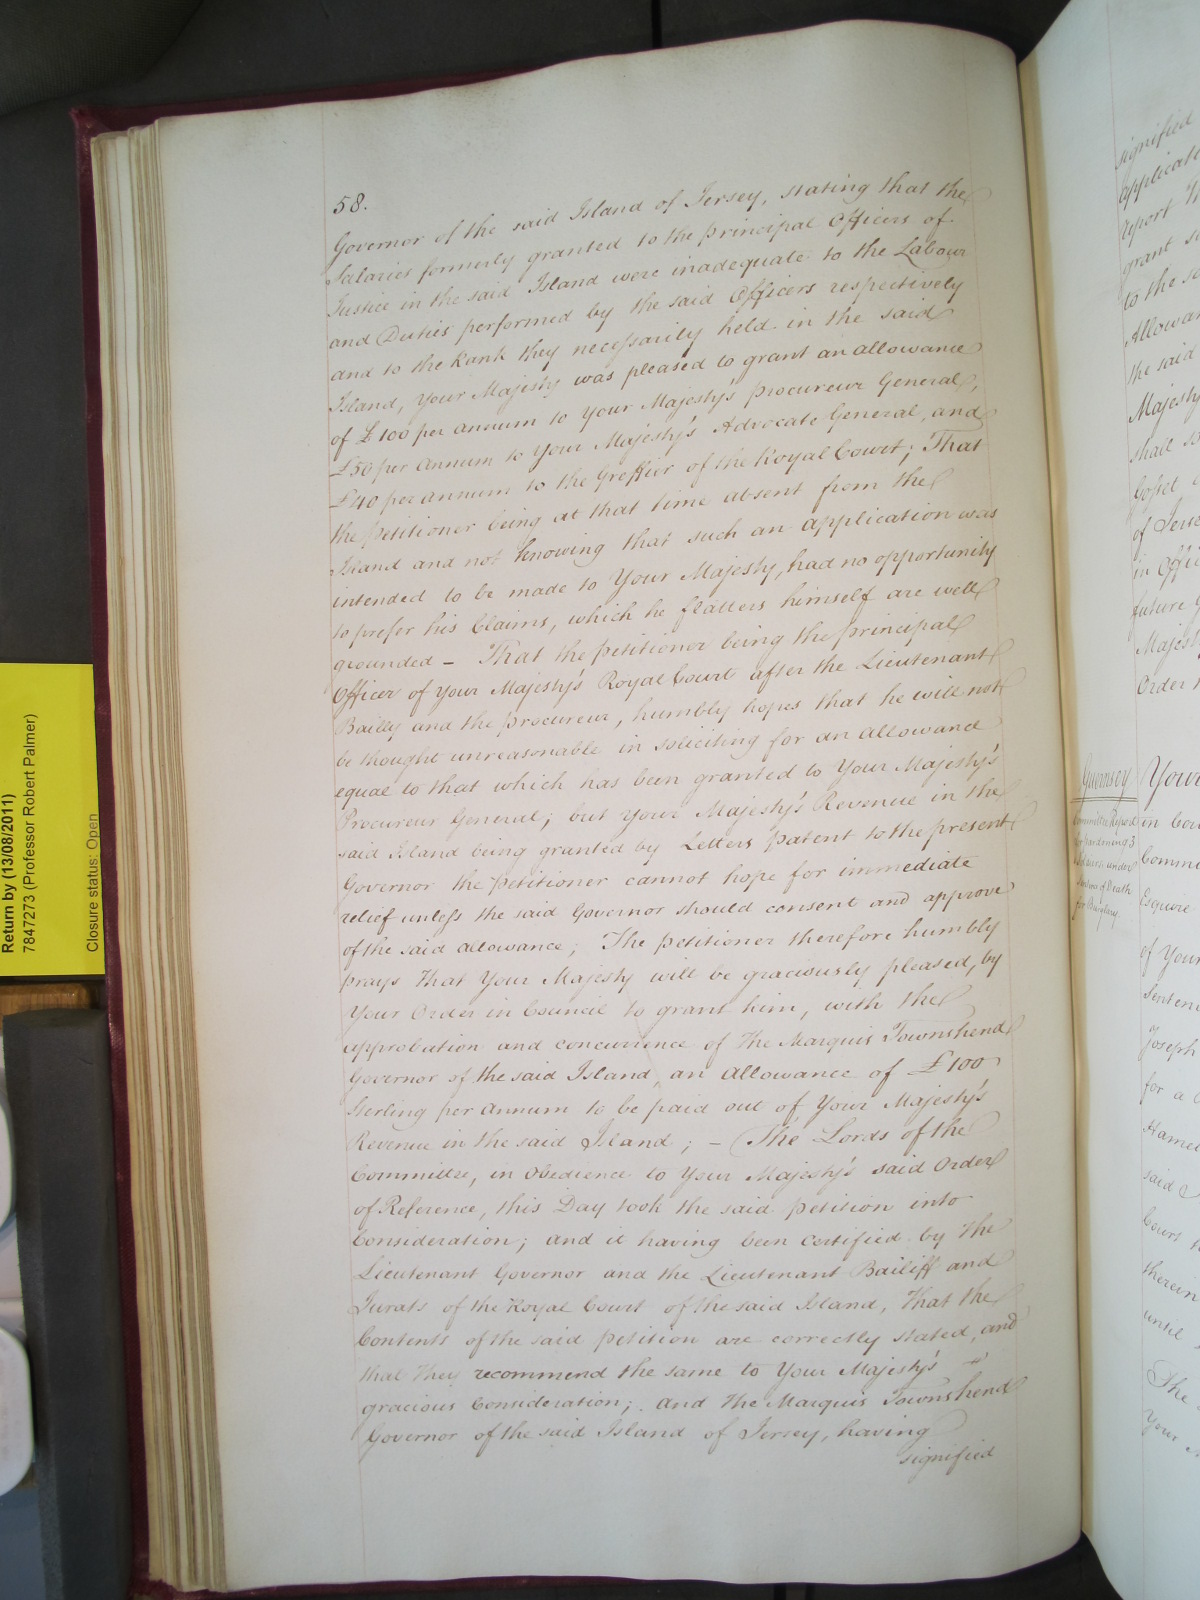 58.
Governor of the said Island of Jersey, stating that the
Salaries formerly granted to the principal Officers of
Justice in the said Island were inadequate to the Labour
and Duties performed by the said Officers respectively
and to the Rank they necessarily held in the said
Island, Your Majesty was pleased to grant an allowance
of £100 per annum to Your Majesty's Procureur General,
£50 per Annum to Your Majesty's Advocate General, and
£40 per annum to the Greffier of the Royal Court; That
the Petitioner being at that time absent from the
Island and not knowing that such an application was
intended to be made to Your Majesty, had no opportunity
to prefer his Claims, which he flatters himself are well
grounded – That the Petitioner being the principal
Officer of Your Majesty's Royal Court after the Lieutenant
Bailly and the Procureur, humbly hopes that he will not
be thought unreasonable in soliciting for an Allowance
equal to that which has been granted to Your Majesty's
Procureur General; but Your Majesty's Revenue in the
said Island being granted by Letters Patent to the present
Governor the Petitioner cannot hope for immediate
relief unless the said Governor should consent and approve
of the said allowance; The Petitioner therefore humbly
prays that Your Majesty will be graciously pleased, by
Your Order in Council to grant him, with the
approbation and concurrence of The Marquis Townshend
Governor of the said Island, an Allowance of £100
Sterling per Annum to be paid out of Your Majesty's
Revenue in the said Island; – The Lords of the
Committee, in Obedience to Your Majesty's said Order
of Reference, this Day took the said Petition into
Consideration; and it having been certified by the
Lieutenant Governor and the Lieutenant Bailiff and
Jurats of the Royal Court of the said Island, That the
Contents of the said Petition are correctly stated, and
that they recommend the same to Your Majesty's
gracious Consideration; and The Marquis Townshend
Governor of the said Island of Jersey, having
signified
Return by (13/08/2011)
7847273 (Professor Robert Palmer)
Closure status: Open
signified
applicati
report
grant
to the
Allowan
the said
Majesty
shall
Gosset
of Jerse
in Offi
future
Majest
Order
Guernsey
Committee Report
for pardoning 3
under
Sentence of Death
for Burglary.
Your
in Cou
Commi
Esquire
of Your
Senten
Joseph
for a
Hamel
said
Court
therein
until
The
Your